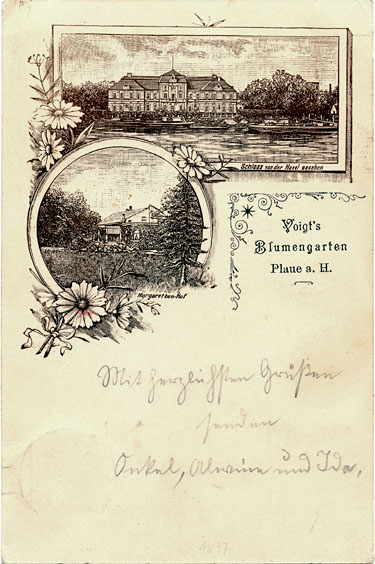 Schloss von der Havel gesehen
Voigt's
Blumengarten
Plaue a. H.
Margarethen-Hof
Mit herzlichsten Grüßen
senden
Onkel, Alwine und Ida.